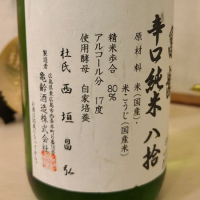 辛口純米 八拾
原材料 米(国産)・
米こうじ(国産米)
精米歩合 80%
アルコール分 17度
使用酵母 自家培養
杜氏 西垣昌弘
製造者
亀齢酒造株式会社